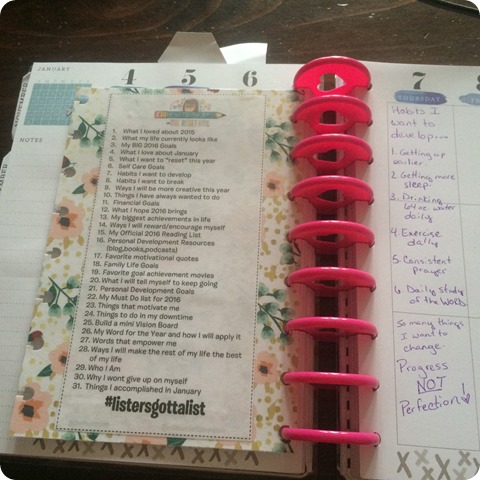 JANUARY
4
5
6
NOTES
1. What I loved about 2015
2. What my life currently looks like
3. My BIG 2016 Goals
4. What I love about January
5. What I want to "reset" this year
6. Self Care Goals
7. Habits I want to develop
8. Habits I want to break
9. Ways I will be more creative this year
10. Things I have always wanted to do
11. Financial Goals
12. What I hope 2016 brings
13. My biggest achievements in life
14. Ways I will reward/encourage myself
15. My Official 2016 Reading List
16. Personal Development Resources
(blog,books,podcasts)
17. Favorite motivational quotes
18. Family Life Goals
19. Favorite goal achievement movies
20. What I will tell myself to keep going
21. Personal Development Goals
22. My Must Do list for 2016
23. Things that motivate me
24. Things to do in my downtime
25. Build a mini Vision Board
26. My Word for the Year and how I will apply it
27. Words that empower me
28. Ways I will make the rest of my life the best
of my life
29. Who I Am
30. Why I wont give up on myself
31. Things I accomplished in January
#listersgottalist
7
THURSDAY
Habits I
want to
develop...
1. Getting up
earlier
2. Getting more
sleep.
3. Drinking
64 oz. water
daily
4. Exercise
daily
5. Consistent
Prayer
6. Daily study
of the WORD
So many things
I want to
change.
Progress
NOT
Perfection!